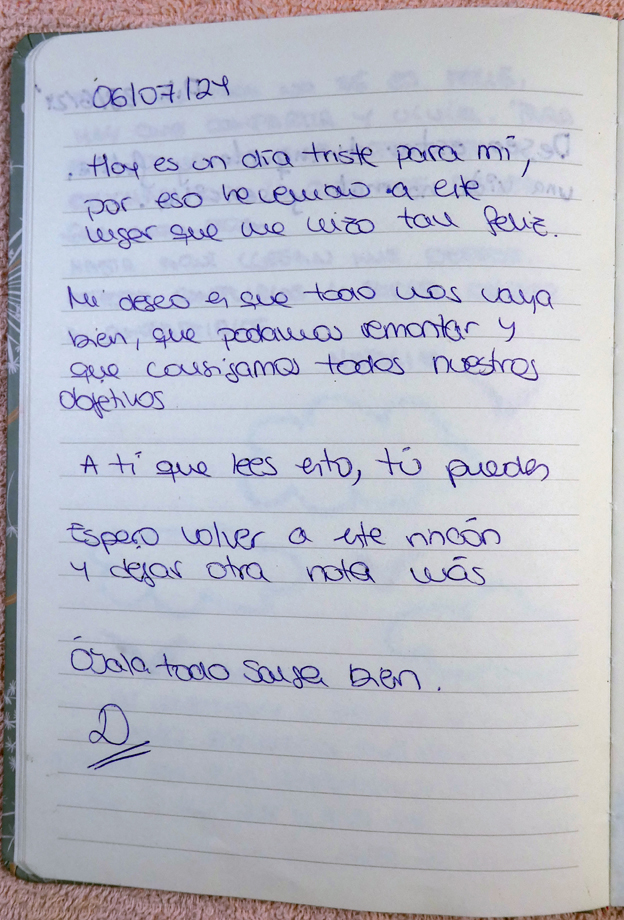 06/07/24
. Hoy es un día triste para mí,
por eso he venido a este
lugar que me hizo tan feliz.
Mi deseo es que todo nos vaya
bien, que podamos remontar y
que consigamos todos nuestros
objetivos
A tí que lees esto, tú puedes
Espero volver a este rincón
y dejar otra nota más
Ójala todo salga bien.
D